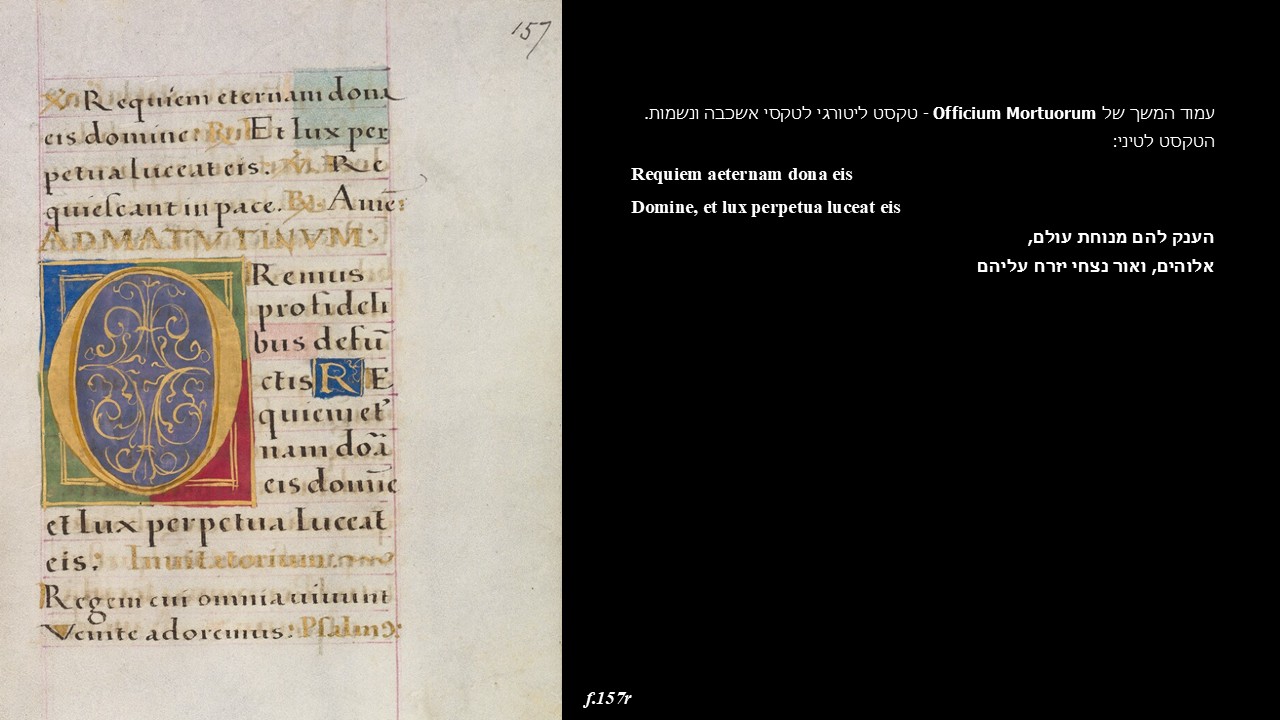 157
Requiem eternam dona
eis domine: Et lux per
petua luceat eis. Re
quiescant in pace. Amē:
AD MATVTINVM:
ORemus
pro fideli
bus defū
ctis RE
quiem et
nam doā
eis domīe
et lux perpetua luceat
eis: Inuitatorium
Regem cui omnia uiuunt
Venite adoremus: Psalm
עמוד המשך של Officium Mortuorum - טקסט ליטורגי לטקסי אשכבה ונשמות.
הטקסט לטיני:
Requiem aeternam dona eis
Domine, et lux perpetua luceat eis
הענק להם מנוחת עולם,
אלוהים, ואור נצחי יזרח עליהם
f.157r